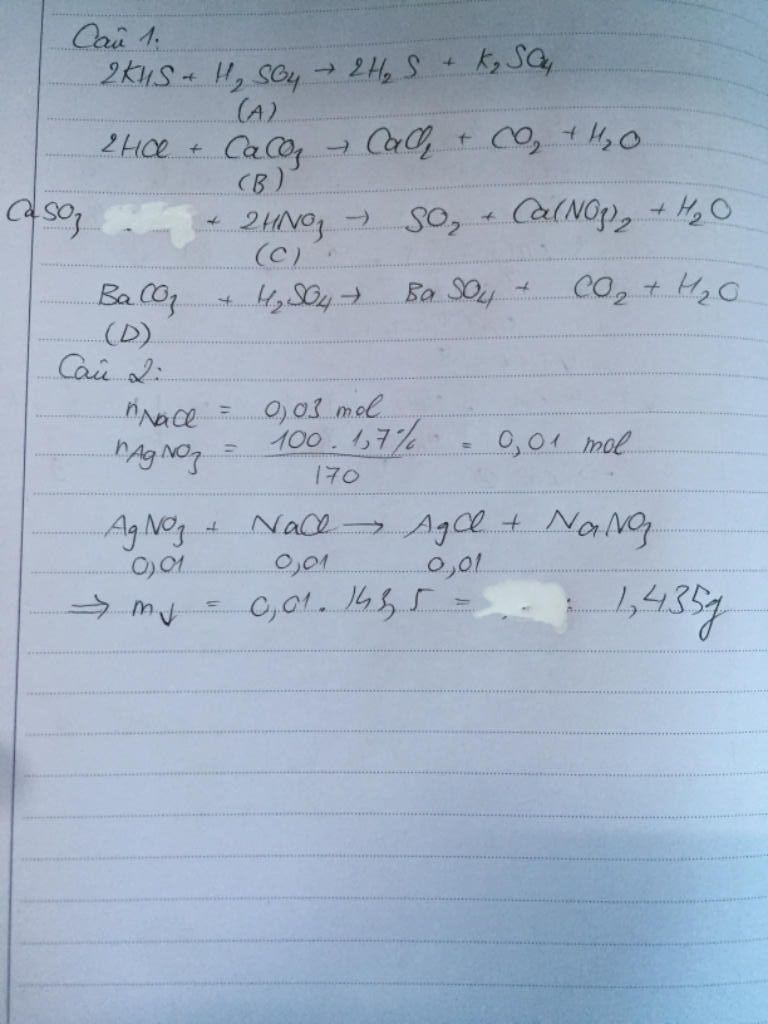 Câu 1:
2KHS + H₂SO₄ → 2H₂S + K₂SO₄
(A)
2HCl + CaCO₃ → CaCl₂ + CO₂ + H₂O
(B)
CaSO₃ + 2HNO₃ → SO₂ + Ca(NO₃)₂ + H₂O
(C)
BaCO₃ + H₂SO₄ → BaSO₄ + CO₂ + H₂O
(D)
Câu 2:
nNaCl = 0,03 mol
nAgNO₃ = 100 . 1,7% / 170 = 0,01 mol
AgNO₃ + NaCl → AgCl + NaNO₃
0,01 0,01 0,01
⇒ m↓ = 0,01 . 143,5 = : 1,435g